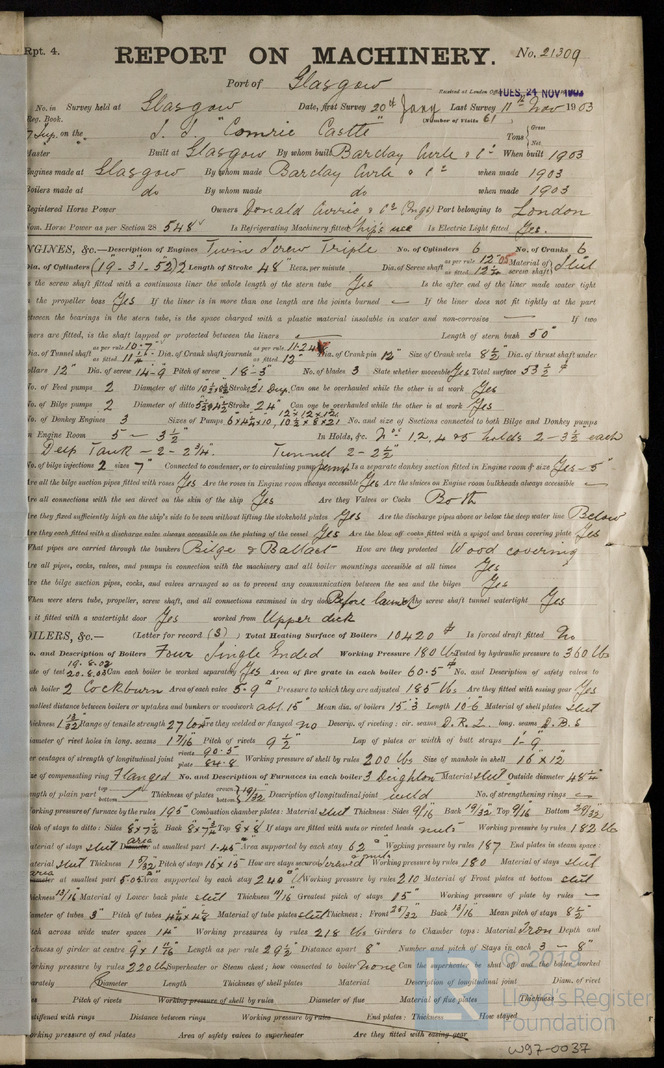 Rpt. 4.
REPORT ON MACHINERY.
No. 21309
Port of Glasgow
Received at London Office TUES. 24 NOV 1903
No. in Survey held at Glasgow Date, first Survey 20th Jany Last Survey 11th Nov 1903
Reg. Book. (Number of Visits 61)
Sup. on the S. S. "Comrie Castle" Tons Gross Net
Master Built at Glasgow By whom built Barclay Curle & Co When built 1903
Engines made at Glasgow By whom made Barclay Curle & Co when made 1903
Boilers made at do By whom made do when made 1903
Registered Horse Power Owners Donald Currie & Co (Mgs) Port belonging to London
Nom. Horse Power as per Section 28 548 Is Refrigerating Machinery fitted Ship's use Is Electric Light fitted Yes.
ENGINES, &c.—Description of Engines Twin Screw Triple No. of Cylinders 6 No. of Cranks 6
Dia. of Cylinders (19-31-52)2 Length of Stroke 48" Revs. per minute Dia. of Screw shaft as per rule 12.05 as fitted 12¾ Material of screw shaft Steel
Is the screw shaft fitted with a continuous liner the whole length of the stern tube Yes Is the after end of the liner made water tight
in the propeller boss Yes If the liner is in more than one length are the joints burned — If the liner does not fit tightly at the part
between the bearings in the stern tube, is the space charged with a plastic material insoluble in water and non-corrosive — If two
liners are fitted, is the shaft lapped or protected between the liners — Length of stern bush 50"
Dia. of Tunnel shaft as per rule 10.7 as fitted Dia. of Crank shaft journals as per rule 11.24 as fitted 12" Dia. of Crank pin 12" Size of Crank webs 8½" Dia. of thrust shaft under
collars 12" Dia. of screw 14-9 Pitch of screw 18-3 No. of blades 3 State whether moveable Yes Total surface 53
No. of Feed pumps 2 Diameter of ditto Stroke 21 Dup. Can one be overhauled while the other is at work Yes
No. of Bilge pumps 2 Diameter of ditto Stroke 24" Can one be overhauled while the other is at work Yes
No. of Donkey Engines 3 Sizes of Pumps 12×12×12, 10½×8×21 No. and size of Suctions connected to both Bilge and Donkey pumps
In Engine Room 5 — 3½" In Holds, &c. Nos. 1, 2, 4 & 5 holds 2-3½ each
Deep Tank — 2 - 2¾". Tunnel 2 - 2½"
No. of bilge injections 2 sizes 7" Connected to condenser, or to circulating pump pump Is a separate donkey suction fitted in Engine room & size Yes - 5"
Are all the bilge suction pipes fitted with roses Yes Are the roses in Engine room always accessible Yes Are the sluices on Engine room bulkheads always accessible —
Are all connections with the sea direct on the skin of the ship Yes Are they Valves or Cocks Both
Are they fixed sufficiently high on the ship's side to be seen without lifting the stokehold plates Yes Are the discharge pipes above or below the deep water line Below
Are they each fitted with a discharge valve always accessible on the plating of the vessel Yes Are the blow off cocks fitted with a spigot and brass covering plate Yes
What pipes are carried through the bunkers Bilge & Ballast How are they protected Wood covering
Are all pipes, cocks, valves, and pumps in connection with the machinery and all boiler mountings accessible at all times Yes
Are the bilge suction pipes, cocks, and valves arranged so as to prevent any communication between the sea and the bilges Yes
When were stern tube, propeller, screw shaft, and all connections examined in dry dock Before launch Is the screw shaft tunnel watertight Yes
Is it fitted with a watertight door Yes worked from Upper deck
BOILERS, &c.— (Letter for record (S)) Total Heating Surface of Boilers 10420 Is forced draft fitted No
No. and Description of Boilers Four Single Ended Working Pressure 180 lbs Tested by hydraulic pressure to 360 lbs
Date of test 20.8.03 Can each boiler be worked separately Yes Area of fire grate in each boiler 60.5 No. and Description of safety valves to
each boiler 2 Cockburn Area of each valve 5.9" Pressure to which they are adjusted 185 lbs Are they fitted with easing gear Yes
Smallest distance between boilers or uptakes and bunkers or woodwork abt. 15" Mean dia. of boilers 15-3 Length 10-6 Material of shell plates steel
Thickness Range of tensile strength 27 tons Are they welded or flanged no Descrip. of riveting: cir. seams D.R.L. long. seams D.B.S
Diameter of rivet holes in long. seams Pitch of rivets 9½" Lap of plates or width of butt straps 1-9"
Per centages of strength of longitudinal joint rivets 90.5 plate 84.8 Working pressure of shell by rules 200 lbs Size of manhole in shell 16×12"
Size of compensating ring Flanged No. and Description of Furnaces in each boiler 3 Deighton Material steel Outside diameter 48¼"
Length of plain part top bottom Thickness of plates crown bottom 19/32 Description of longitudinal joint weld No. of strengthening rings —
Working pressure of furnace by the rules 195 Combustion chamber plates: Material steel Thickness: Sides 9/16 Back 19/32 Top 9/16 Bottom
Pitch of stays to ditto: Sides 8×7½ Back 8×7¾ Top 8×8 If stays are fitted with nuts or riveted heads nuts Working pressure by rules 182 lbs
Material of stays steel area at smallest part 1.45" Area supported by each stay 62" Working pressure by rules 187 End plates in steam space:
Material steel Thickness Pitch of stays 16×15 How are stays secured Screwed & nuts Working pressure by rules 180 Material of stays steel
area at smallest part 5.05 Area supported by each stay 240 Working pressure by rules 210 Material of Front plates at bottom steel
Thickness 13/16 Material of Lower back plate steel Thickness 11/16 Greatest pitch of stays 15" Working pressure of plate by rules —
Diameter of tubes 3" Pitch of tubes Material of tube plates steel Thickness: Front 25/32 Back 13/16 Mean pitch of stays 8½"
Pitch across wide water spaces 14" Working pressures by rules 218 lbs Girders to Chamber tops: Material Iron Depth and
thickness of girder at centre Length as per rule 29½" Distance apart 8" Number and pitch of Stays in each 3 — 8"
Working pressure by rules 220 lbs Superheater or Steam chest; how connected to boiler None Can the superheater be shut off and the boiler worked
separately Diameter Length Thickness of shell plates Material Description of longitudinal joint Diam. of rivet
holes Pitch of rivets Working pressure of shell by rules Diameter of flue Material of flue plates Thickness
If stiffened with rings Distance between rings Working pressure by rules End plates: Thickness How stayed
Working pressure of end plates Area of safety valves to superheater Are they fitted with easing gear
© 2019
Lloyd's Register
Foundation
W97-0037